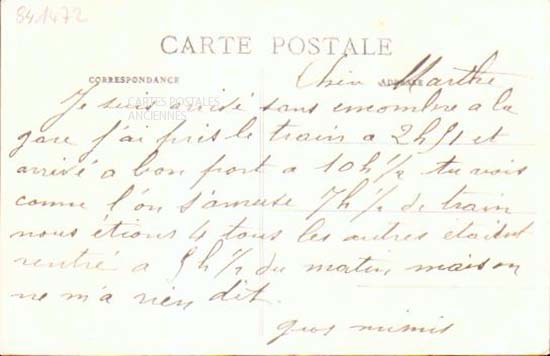 841472
CARTE POSTALE
CORRESPONDANCE
ADRESSE
CARTES POSTALES
ANCIENNES
Chère Marthe
Je suis arrivé sans encombre a la
gare j'ai pris le train a 2h51 et
arrivé a bon port a 10h½ tu vois
comme l'on s'amuse 7h½ de train
nous étions 4 tous les autres étaient
rentré a 5h½ du matin, maison
ne m'a rien dit.
gros mimis